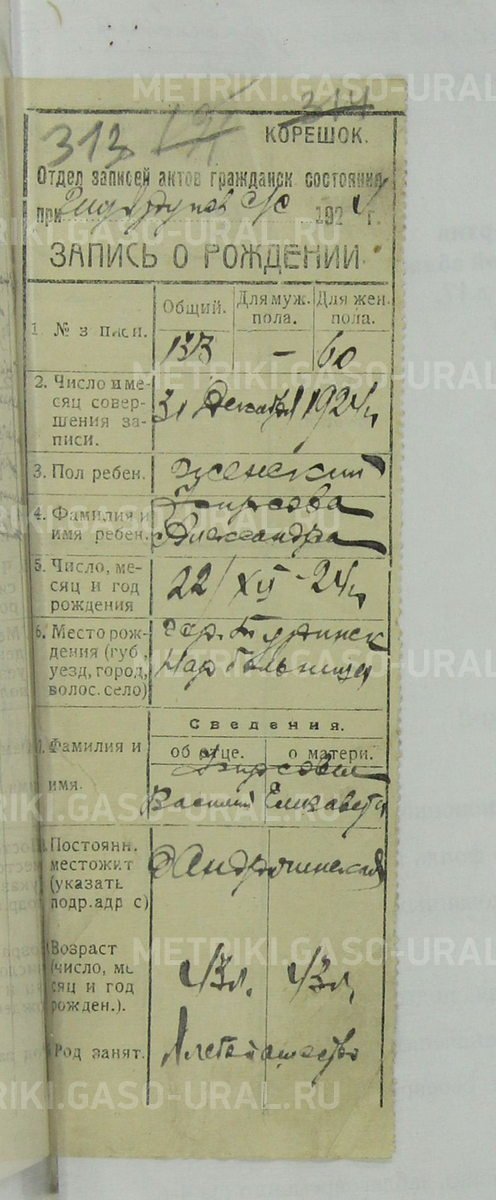 METRIKI.GASO-URAL.RU
314
313
КОРЕШОК.
Отдел записей актов гражданск. состояния
при с/с 1924 г.
ЗАПИСЬ О РОЖДЕНИИ
Общий. Для муж. пола. Для жен. пола.
1. № з писи.
133 — 60
2. Число и месяц совершения записи.
31 Декабря 1924 г.
3. Пол ребен. женский
4. Фамилия и имя ребен. Фирсова
Александра
5. Число, месяц и год рождения
22/XII-24 г.
6. Место рождения (губ., уезд, город, волос. село)
гор. Туринск
Нар больница
Сведения.
об отце. о матери.
7. Фамилия и имя.
Фирсовы
Василий Елизавета
Постоянн. местожит (указать подр. адр с)
д Андрюшинская
Возраст (число, ме сяц и год рожден.).
43 л. 43 л.
Род занят.